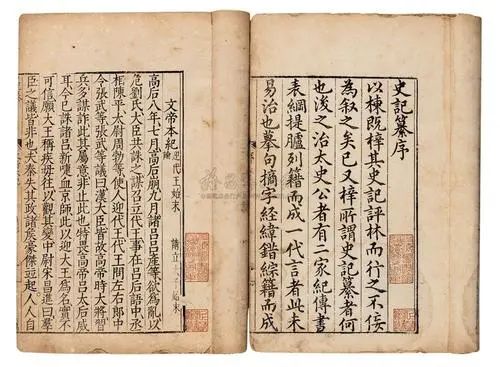 史記纂序
以棟既梓其史記評林而行之不佞
為叙之矣已又梓所謂史記纂者何
也後之治太史公者有二家紀傳書
表綱提臚列籍而成一代言者此未
易治也摹句摘字經緯錯綜籍而成
文帝本紀
迎代王始末
高后八年七月高后崩九月諸呂呂產等欲為亂以
危劉氏大臣共誅之謀召立代王事在呂后語中丞
相陳平太尉周勃等使人迎代王代王問左右郎中
令張武等張武等議曰漢大臣皆故高帝時大將習
兵多謀詐此其屬意非止此也特畏高帝呂太后威
耳今已誅諸呂新喋血京師此以迎大王為名實不
可信願大王稱疾毋往以觀其變中尉宋昌進曰羣
臣之議皆非也夫秦失其政諸侯豪傑並起人人自